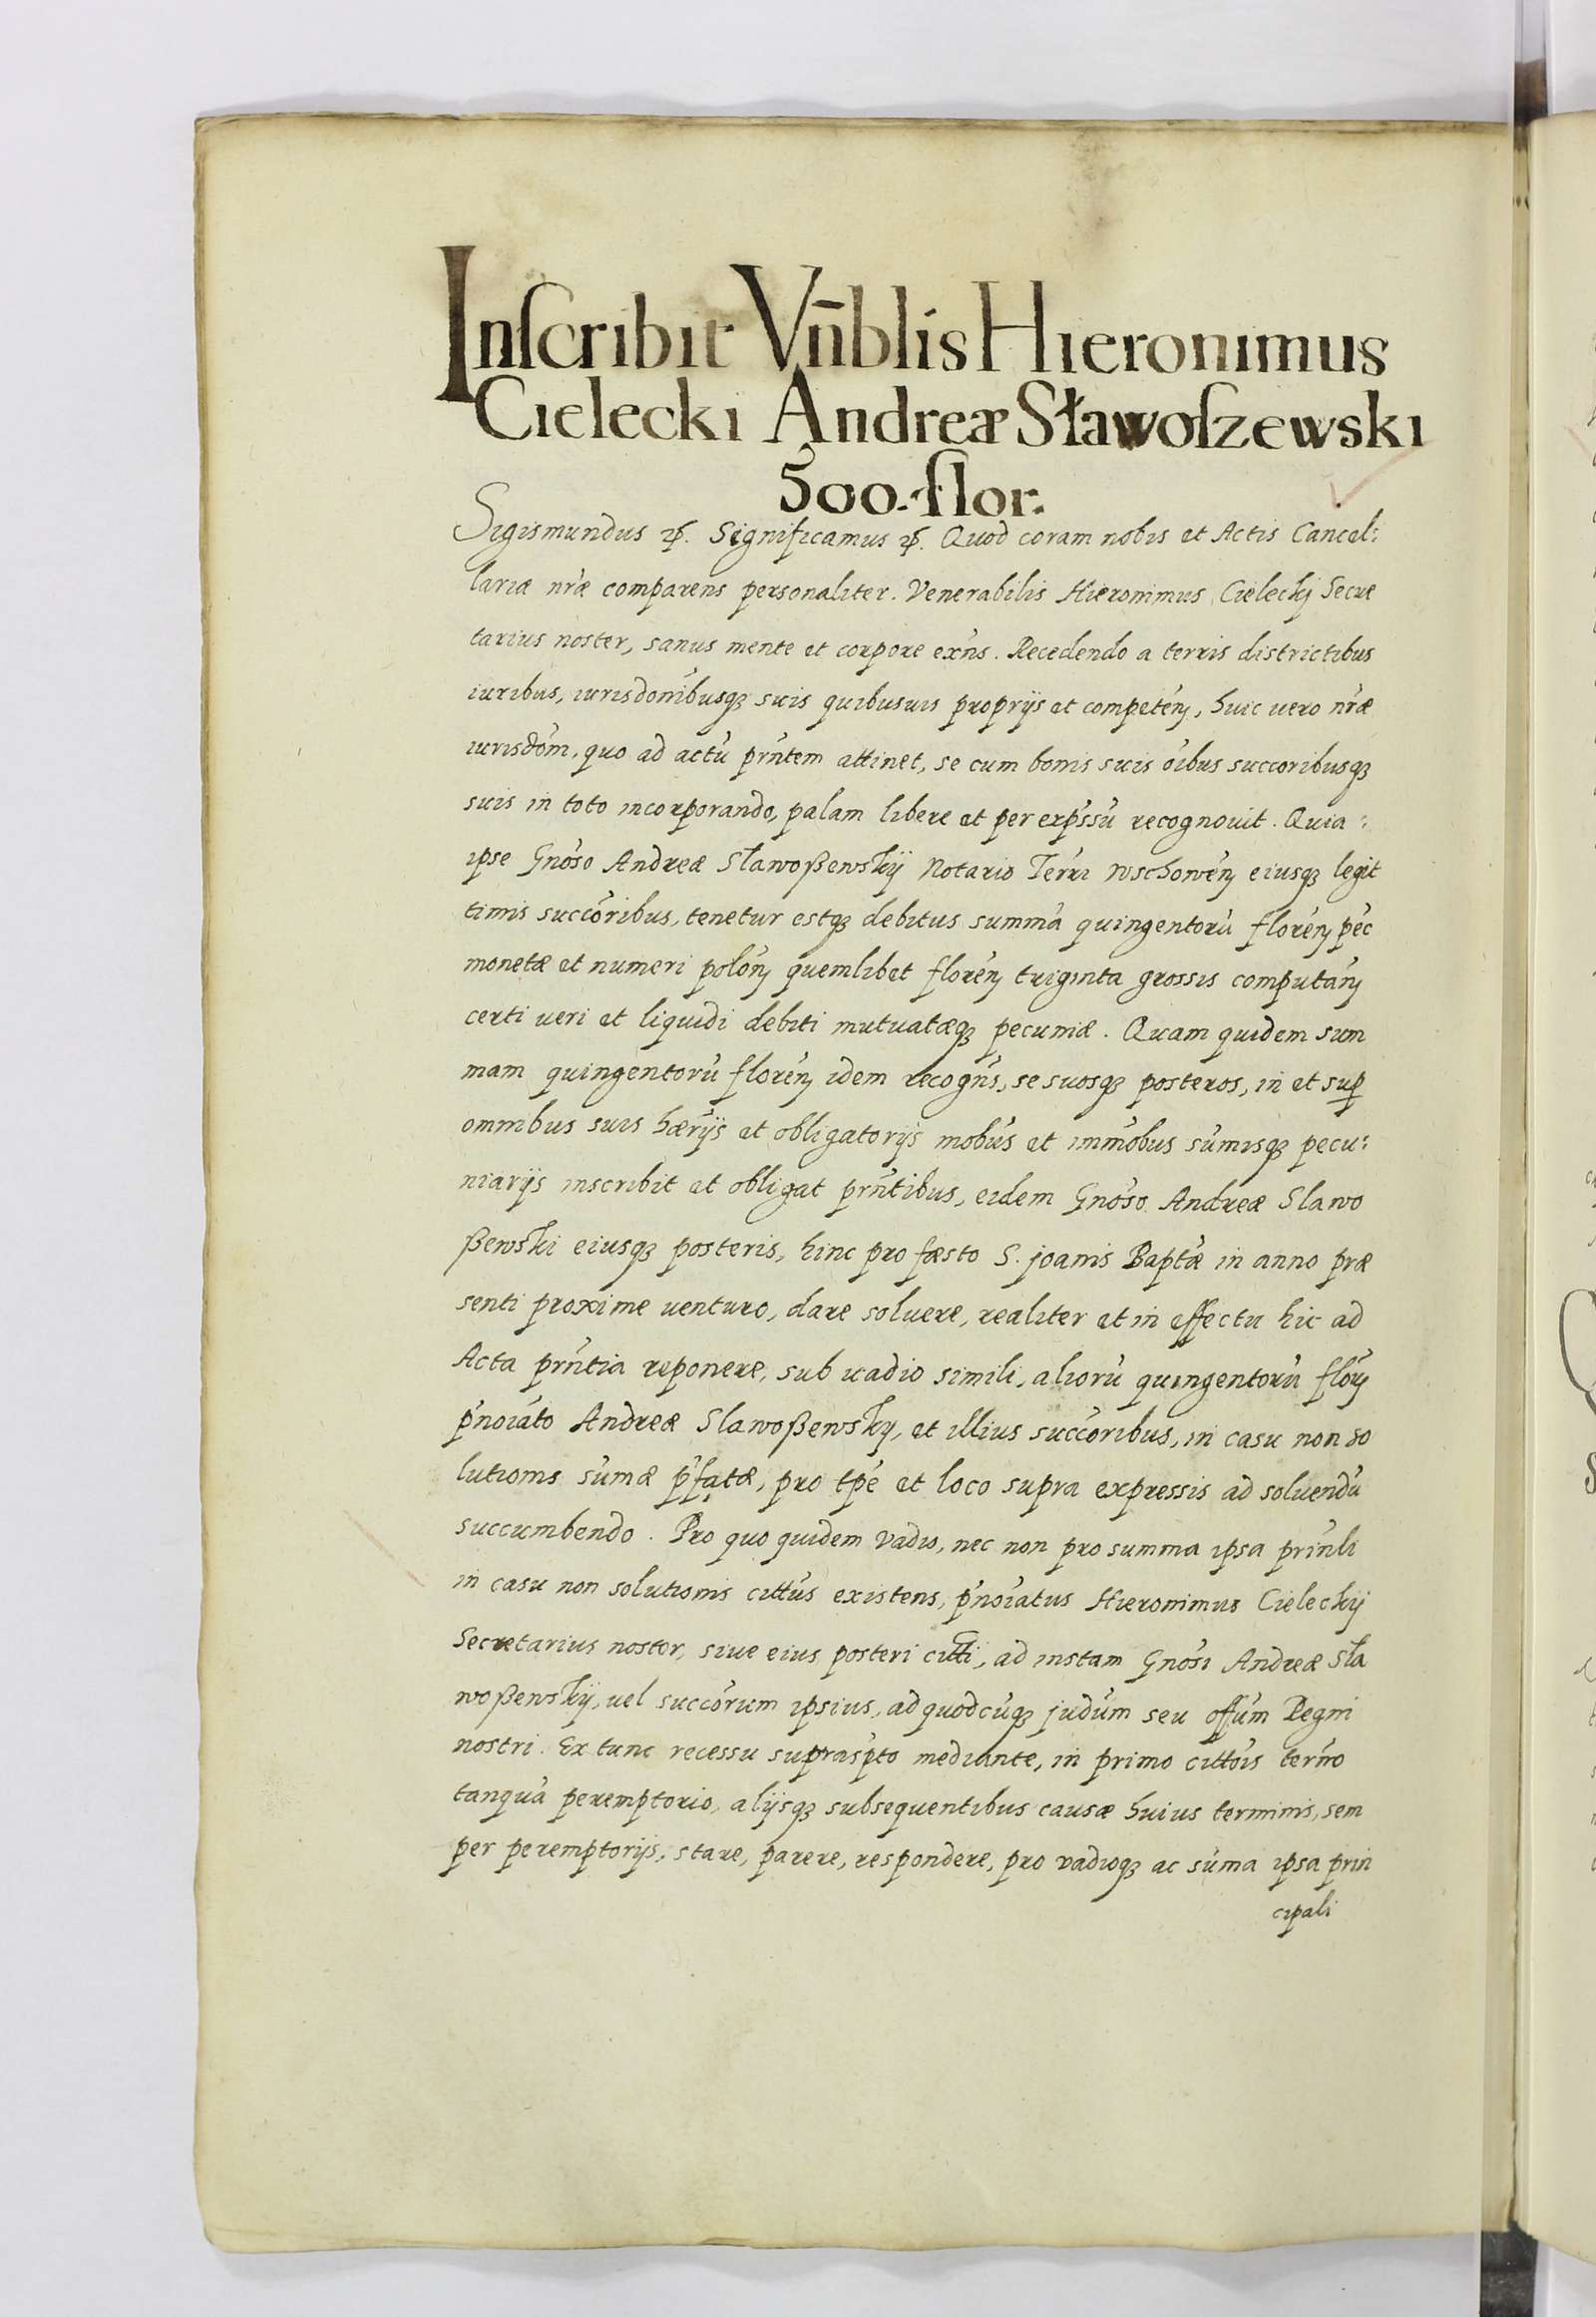 Inſcribit Vn̄blis Hieronimus
Cielecki Andreæ Sławoſzewski
500. flor.
Sigismundus ꝛc̃. Significamus ꝛc̃. Quod coram nobis et Actis Cancel:
lariæ nr̃æ comparens personaliter. Venerabilis Hieronimus Cielecky Secre
tarius noster, sanus mente et corpore exñs. Recedendo a terris districtibus
iuribus, iurisdoñibusqꝫ suis quibusuis proprijs et competeñ, huic uero nr̃æ
iurisdoñ. quo ad actũ prñtem attinet, se cum bonis suis oĩbus succoribusqꝫ
suis in toto incorporando, palam libere et per exp̃ssũ recognouit. Quia:
ipse Gnõso Andreæ Sławoßewskij Notario Terrĩ Wschoweñ eiusqꝫ legit
timis succõribus, tenetur estqꝫ debitus summã quingentorũ floreñ pẽc
monetæ et numeri poloñ quemlibet floreñ triginta grossis computañ
certi ueri et liquidi debiti mutuatæqꝫ pecuniæ. Quam quidem sum
mam quingentorũ floreñ idem recogñs, se suosqꝫ posteros, in et suꝑ
omnibus suis hærĩjs et obligatorijs mobũs et immõbus sũmisqꝫ pecu:
niarijs inscribit et obligat prñtibus, eidem Gnõso Andreæ Slawo
ßewski eiusqꝫ posteris, hinc pro fæsto S. Joanis Baptæ̃ in anno præ
senti proxime uenturo, dare soluere, realiter et in effectu hic ad
Acta prñtia reponere, sub uadio simili, aliorũ quingentorũ flõr
p̃noĩato Andreæ Slawoßewsky, et illius succõribus, in casu non so
lutionis sũmæ p̃fatæ, pro tpẽ et loco supra expressis ad soluendũ
succumbendo. Pro quo quidem Vadio, nec non pro summa ipsa prinl̃i
in casu non solutionis cittũs existens, p̃noĩatus Hieronimus Cieleckij
Secretarius noster, siue eius posteri citti, ad instam Gnõsi Andreæ Sła
woßewskij, uel succõrum ipsius, ad quodcũqꝫ judũm seu offũm Regni
nostri. Ex tunc recessu suprasp̃to mediante, in primo cittõis term̃o
tanquã peremptorio, alijsqꝫ subsequentibus causæ huius terminis, sem
per peremptorijs, stare, parere, respondere, pro vadioqꝫ ac sũma ipsa prin
cipali